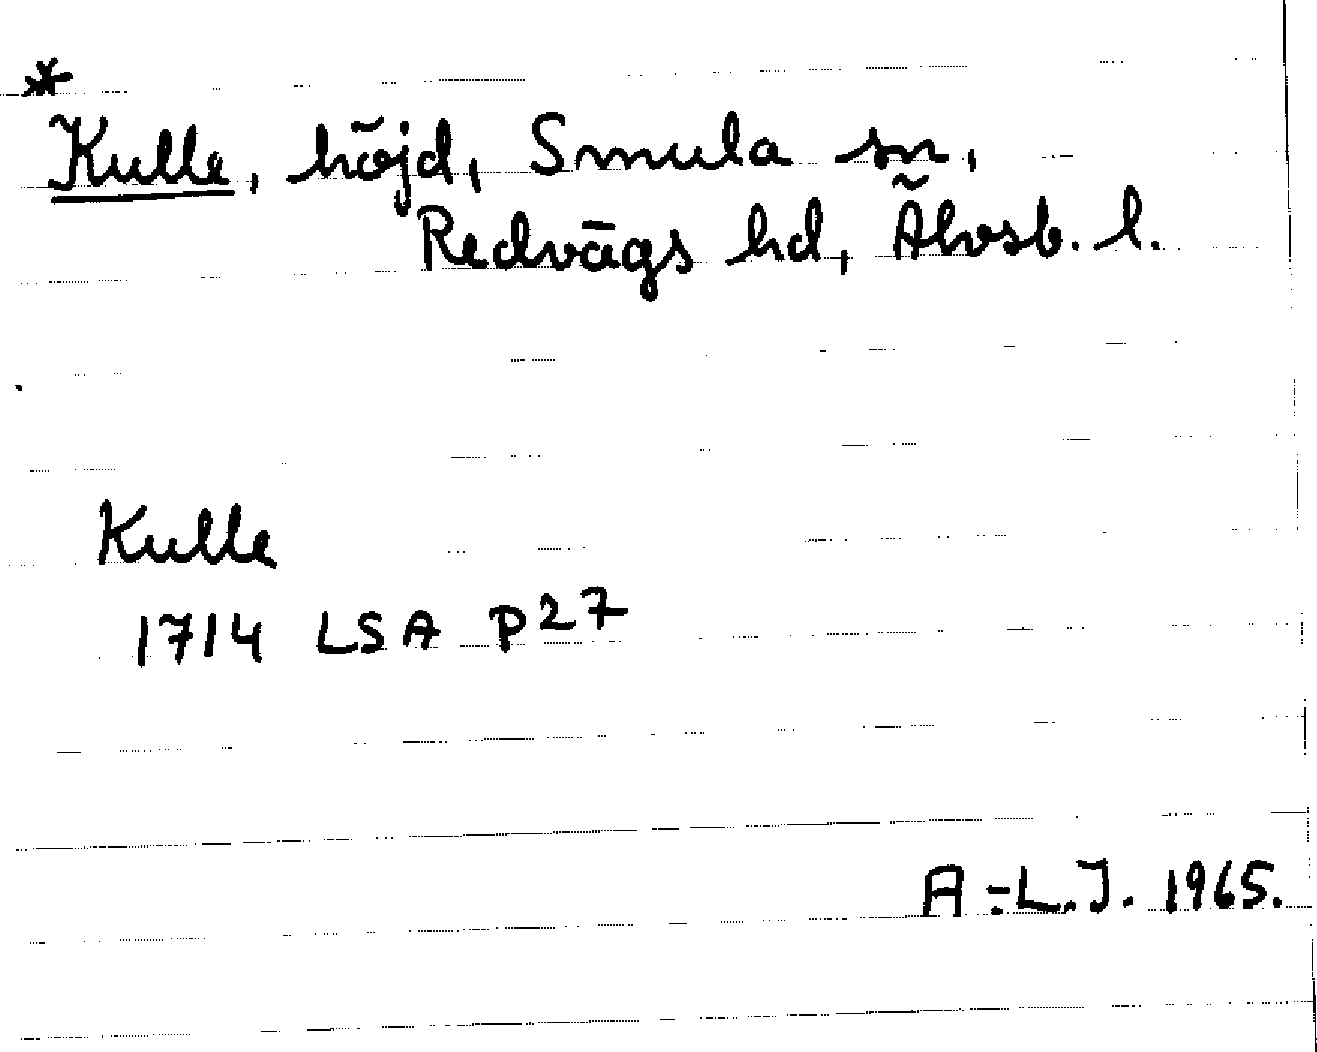 *
Kulle, höjd, Smula sn,
Redvägs hd, Älvsb. l.
Kulle
1714 LSA P27
A-L.J. 1965.